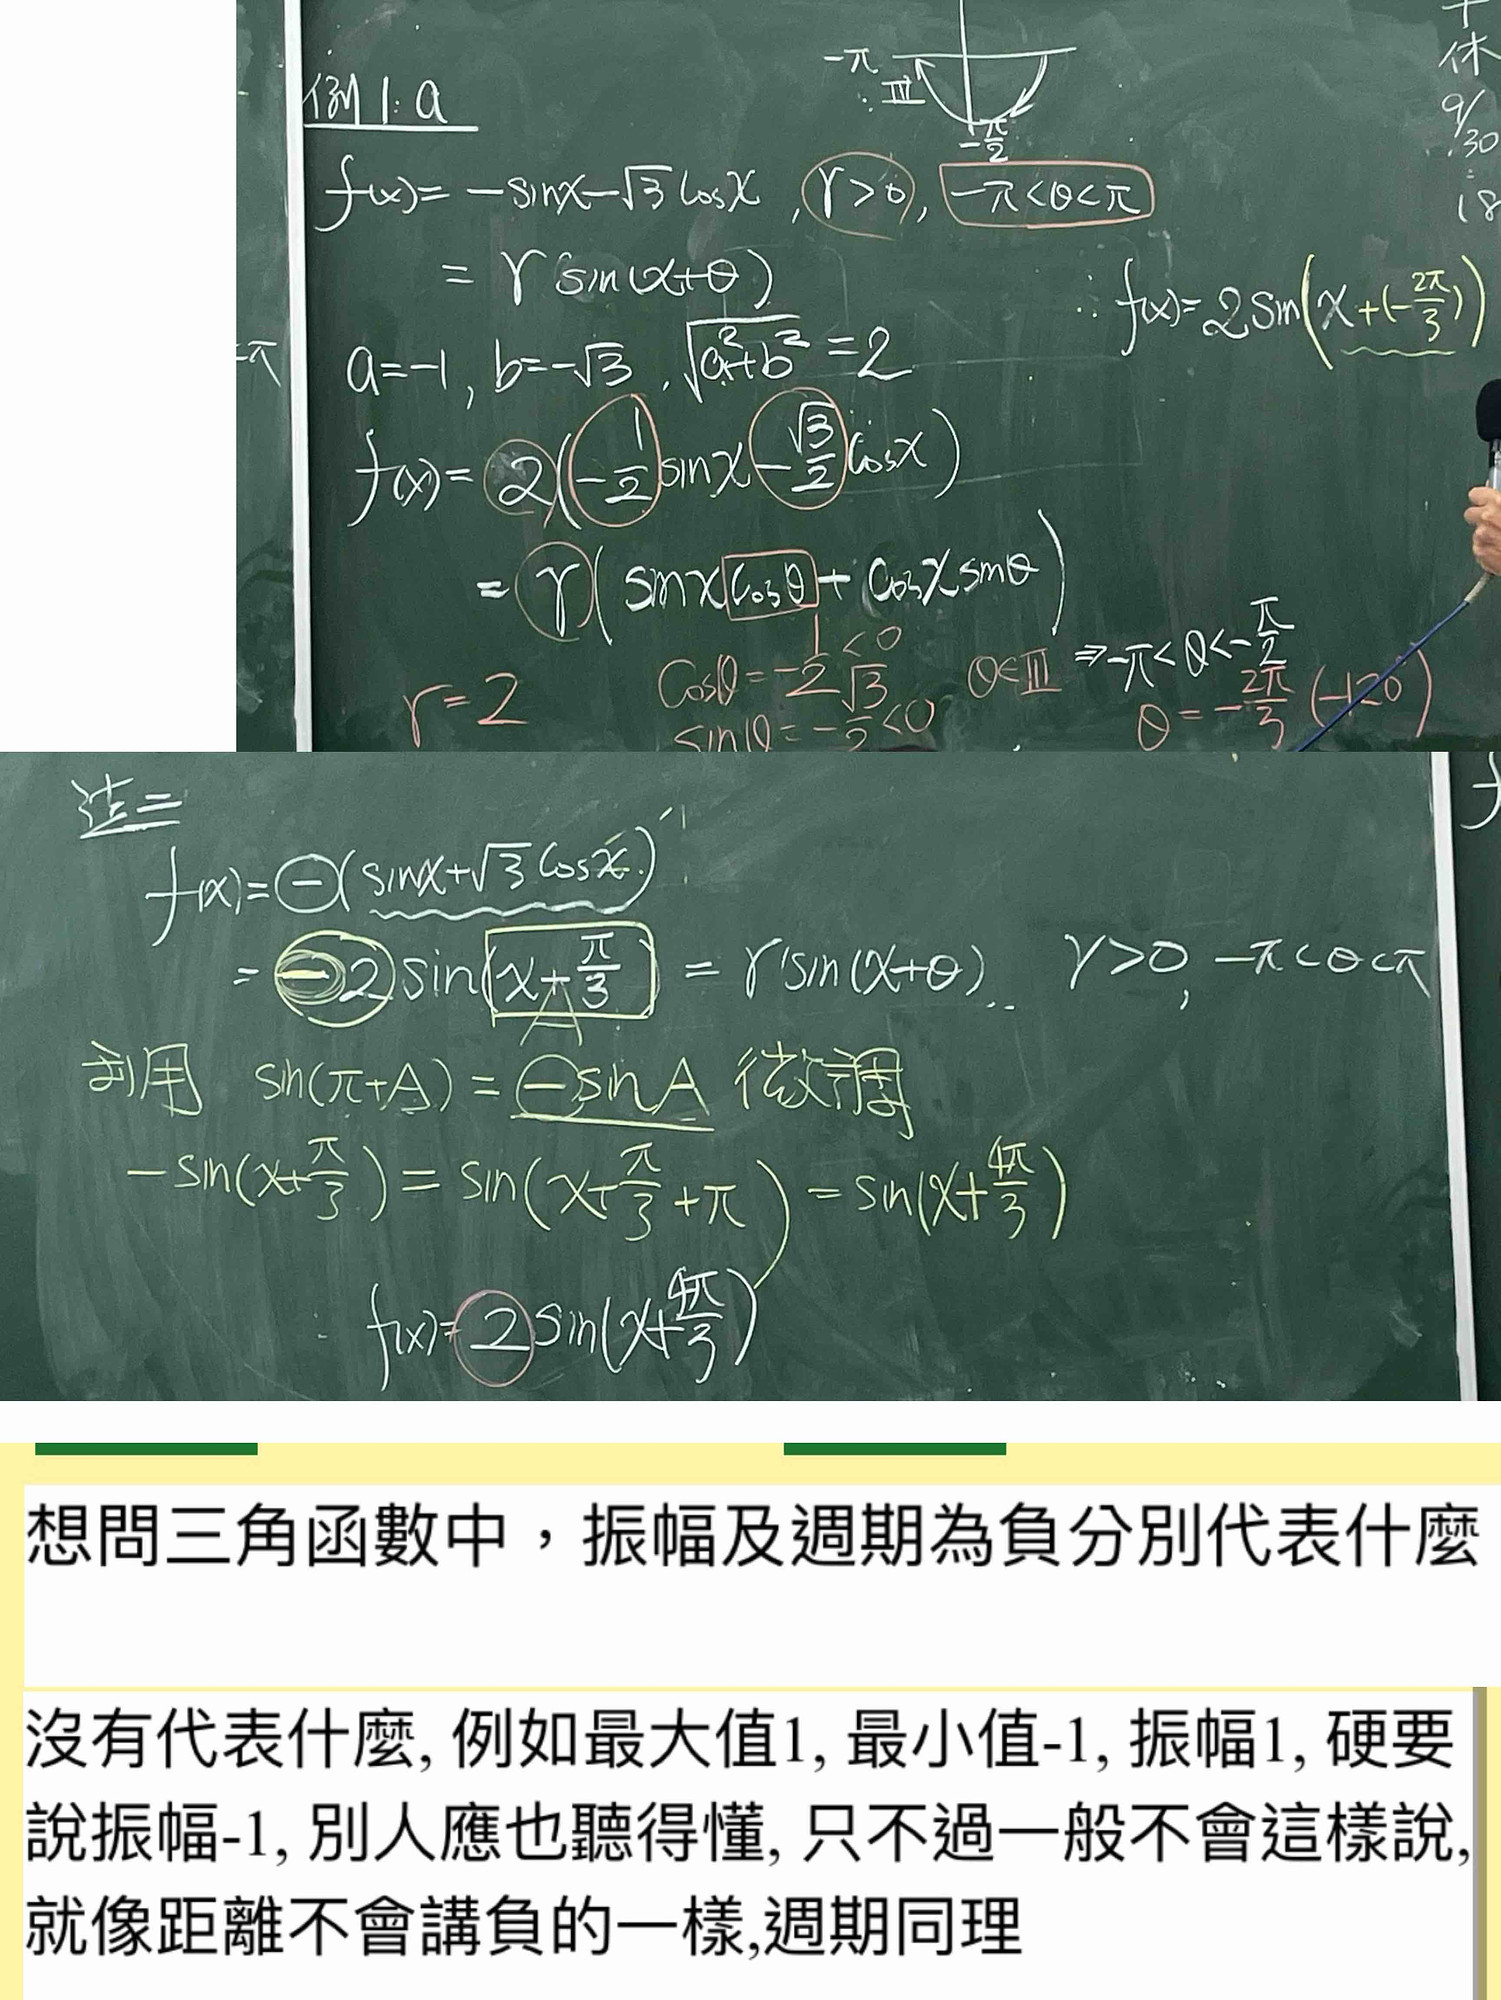 例1:a
-π
III
-π/2
f(x)= -sinx-√3 cosx , r>0, -π<θ<π
= r sin(x+θ)
a=-1, b=-√3, √a²+b² =2
f(x)= 2(-1/2 sinx -√3/2 cosx)
= r( sinx cosθ + cosx sinθ )
r=2
cosθ=-1/2<0
sinθ=-√3/2<0
θ∈III
⇒-π<θ<-π/2
θ=-2π/3 (-120°)
∴ f(x)=2sin(x+(-2π/3))
休
9/30
18
法二
f(x)= -(sinx+√3 cosx)
= -2 sin(x+π/3) = r sin(x+θ) r>0, -π<θ<π
A
利用 sin(π+A)= -sinA 微調
-sin(x+π/3) = sin(x+π/3+π) = sin(x+4π/3)
f(x)= 2 sin(x+4π/3)
想問三角函數中，振幅及週期為負分別代表什麼
沒有代表什麼, 例如最大值1, 最小值-1, 振幅1, 硬要
說振幅-1, 別人應也聽得懂, 只不過一般不會這樣說,
就像距離不會講負的一樣,週期同理